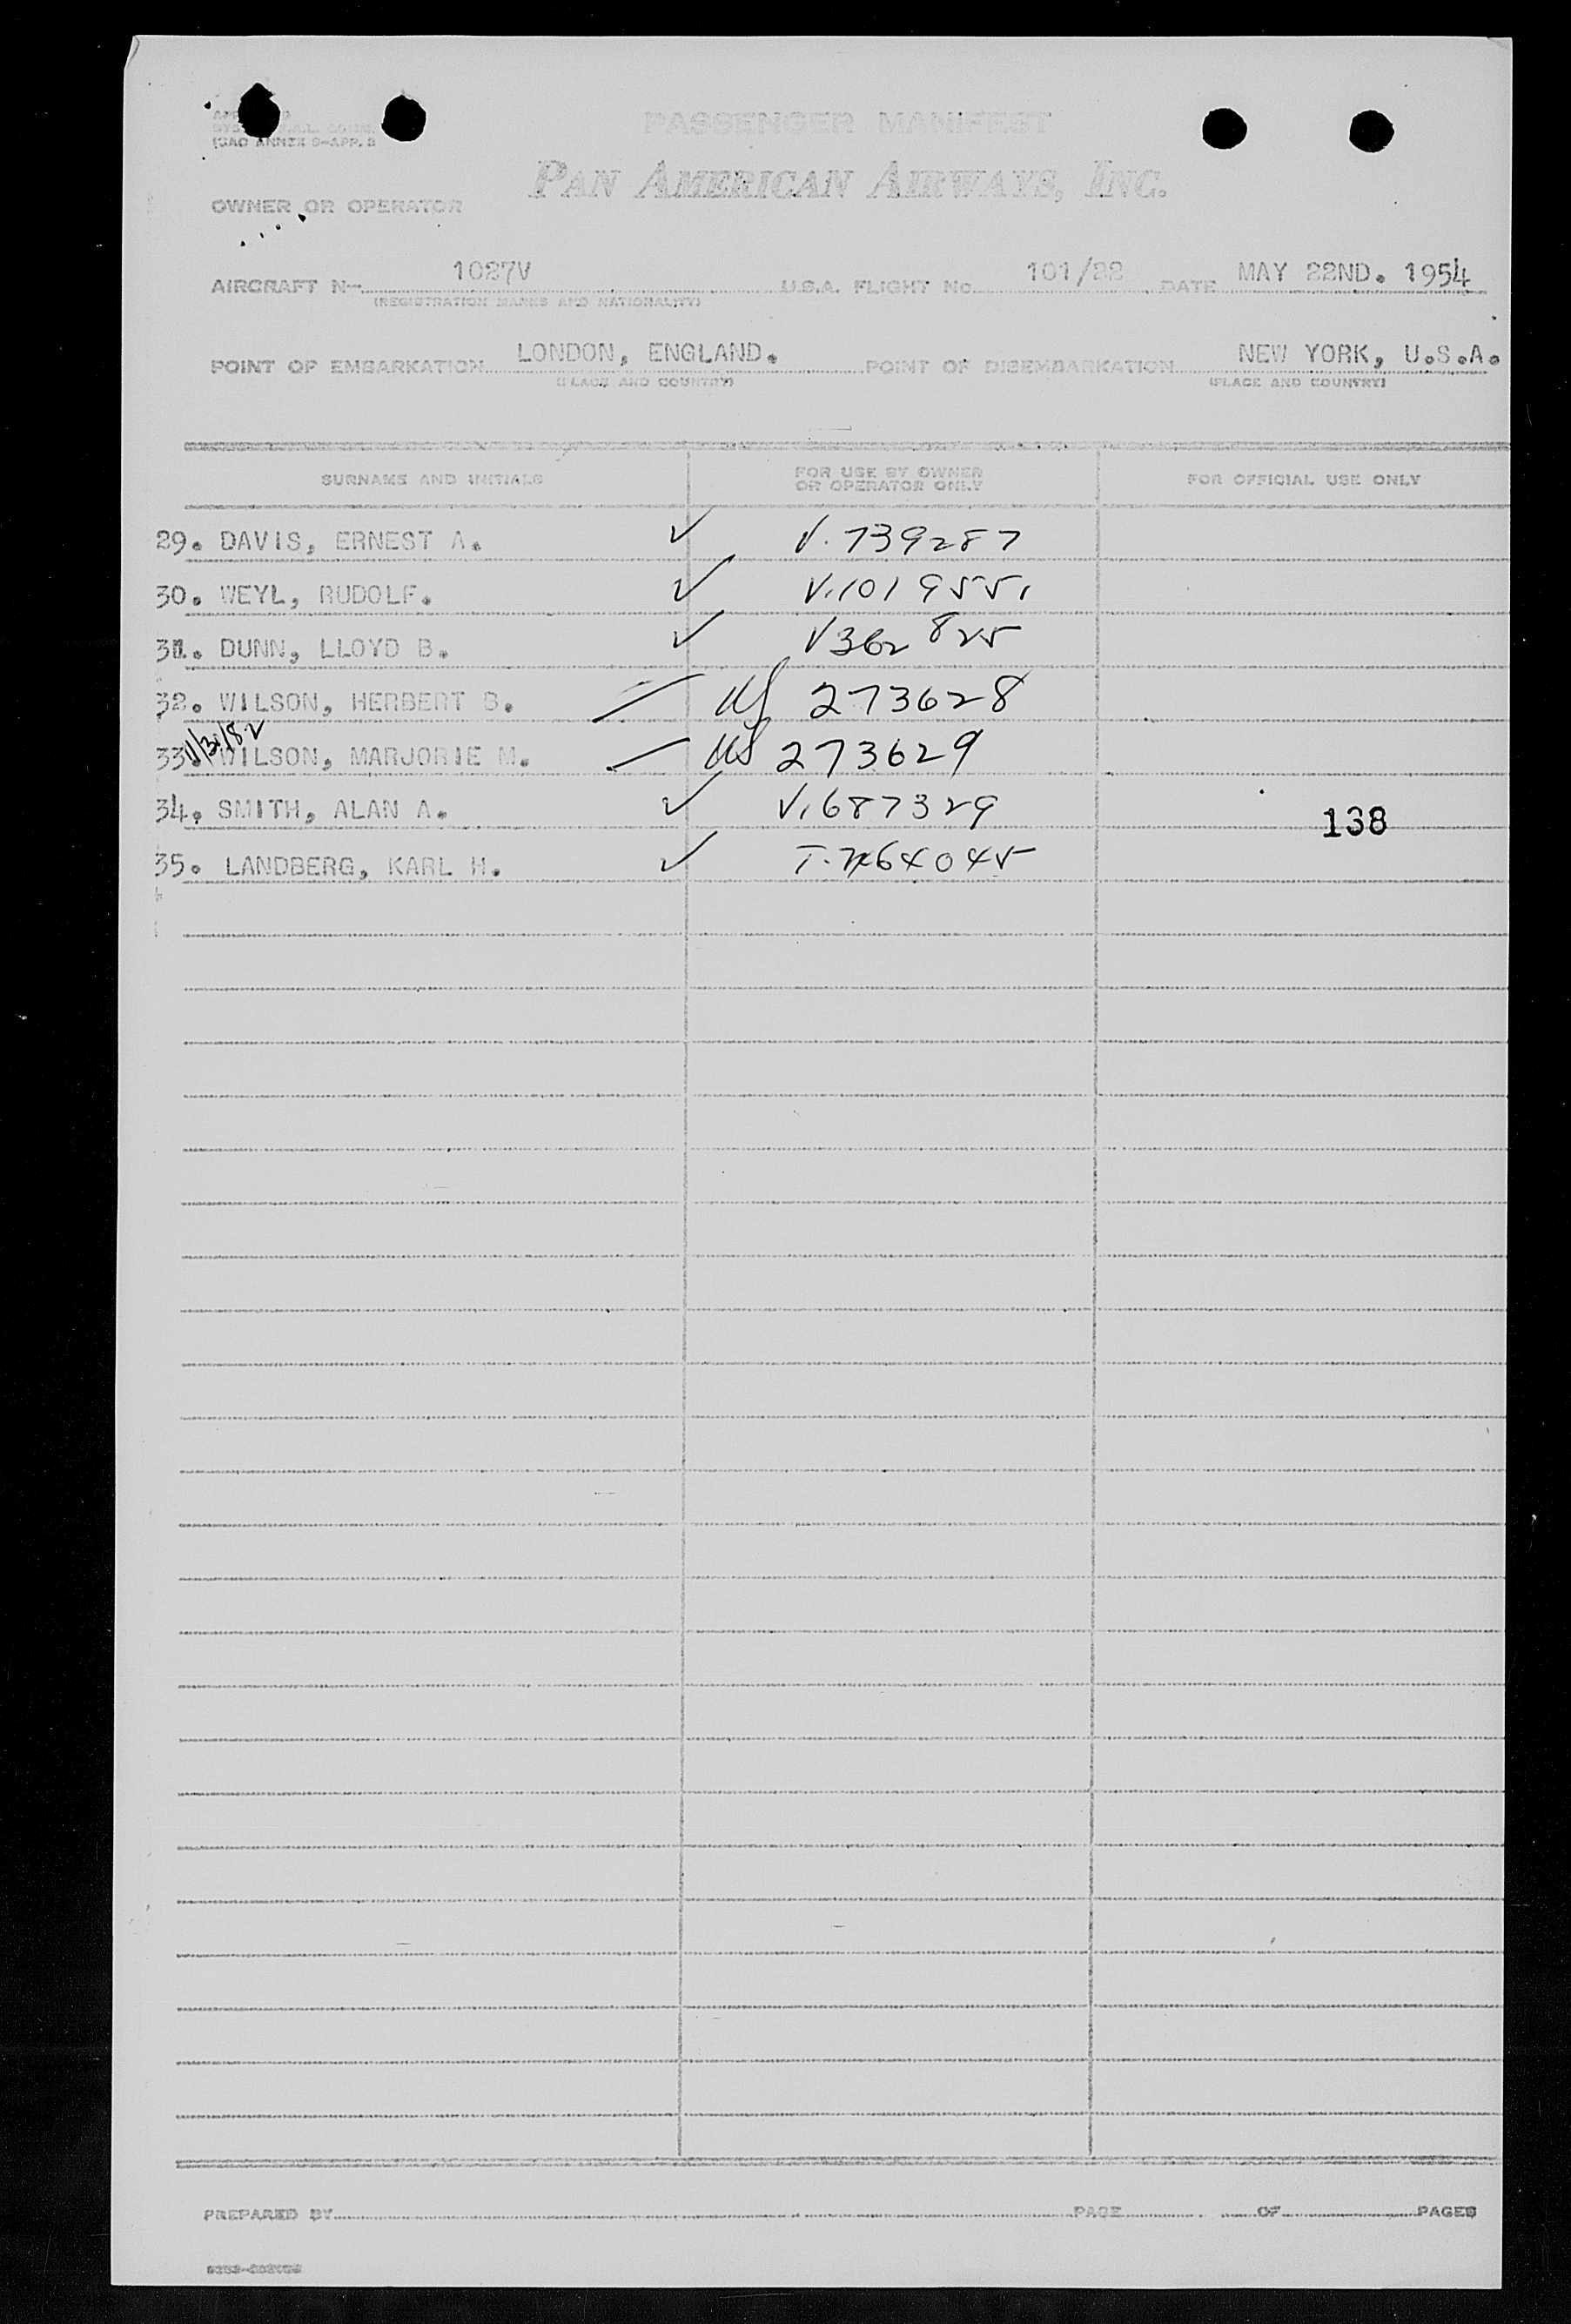 PASSENGER MANIFEST
ICAO ANNEX 9-APP. 3
PAN AMERICAN AIRWAYS, INC.
OWNER OR OPERATOR
AIRCRAFT N- 1027V U.S.A. FLIGHT No. 101/22 DATE MAY 22ND. 1954
(REGISTRATION MARKS AND NATIONALITY)
POINT OF EMBARKATION LONDON, ENGLAND. POINT OF DISEMBARKATION NEW YORK, U.S.A.
(PLACE AND COUNTRY) (PLACE AND COUNTRY)
SURNAME AND INITIALS FOR USE BY OWNER OR OPERATOR ONLY FOR OFFICIAL USE ONLY
29. DAVIS, ERNEST A. ✓ V. 739287
30. WEYL, RUDOLF. ✓ V.1019551
31. DUNN, LLOYD B. ✓ V362825
32. WILSON, HERBERT B. US 273628
33. WILSON, MARJORIE M. US 273629
34. SMITH, ALAN A. ✓ V.687329 138
35. LANDBERG, KARL H. ✓
PREPARED BY PAGE OF PAGES